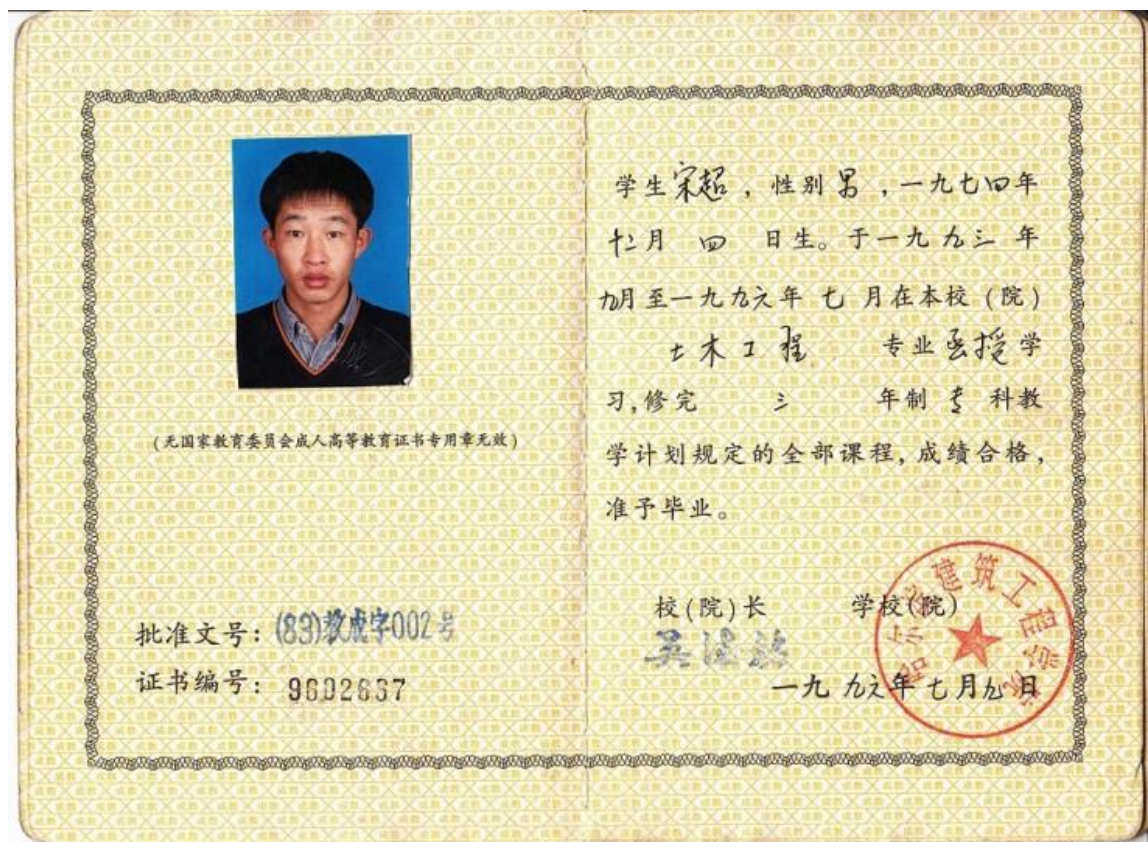 (无国家教育委员会成人高等教育证书专用章无效)
批准文号:(83)教成字002号
证书编号:9602637
学生宋超,性别男,一九七四年
十二月 四 日生。于一九九三 年
九月至一九九六年 七 月在本校(院)
土木工程 专业函授学
习,修完 三 年制 专 科教
学计划规定的全部课程,成绩合格,
准予毕业。
校(院)长 学校(院)
哈尔滨建筑工程学院
一九九六年七月九日